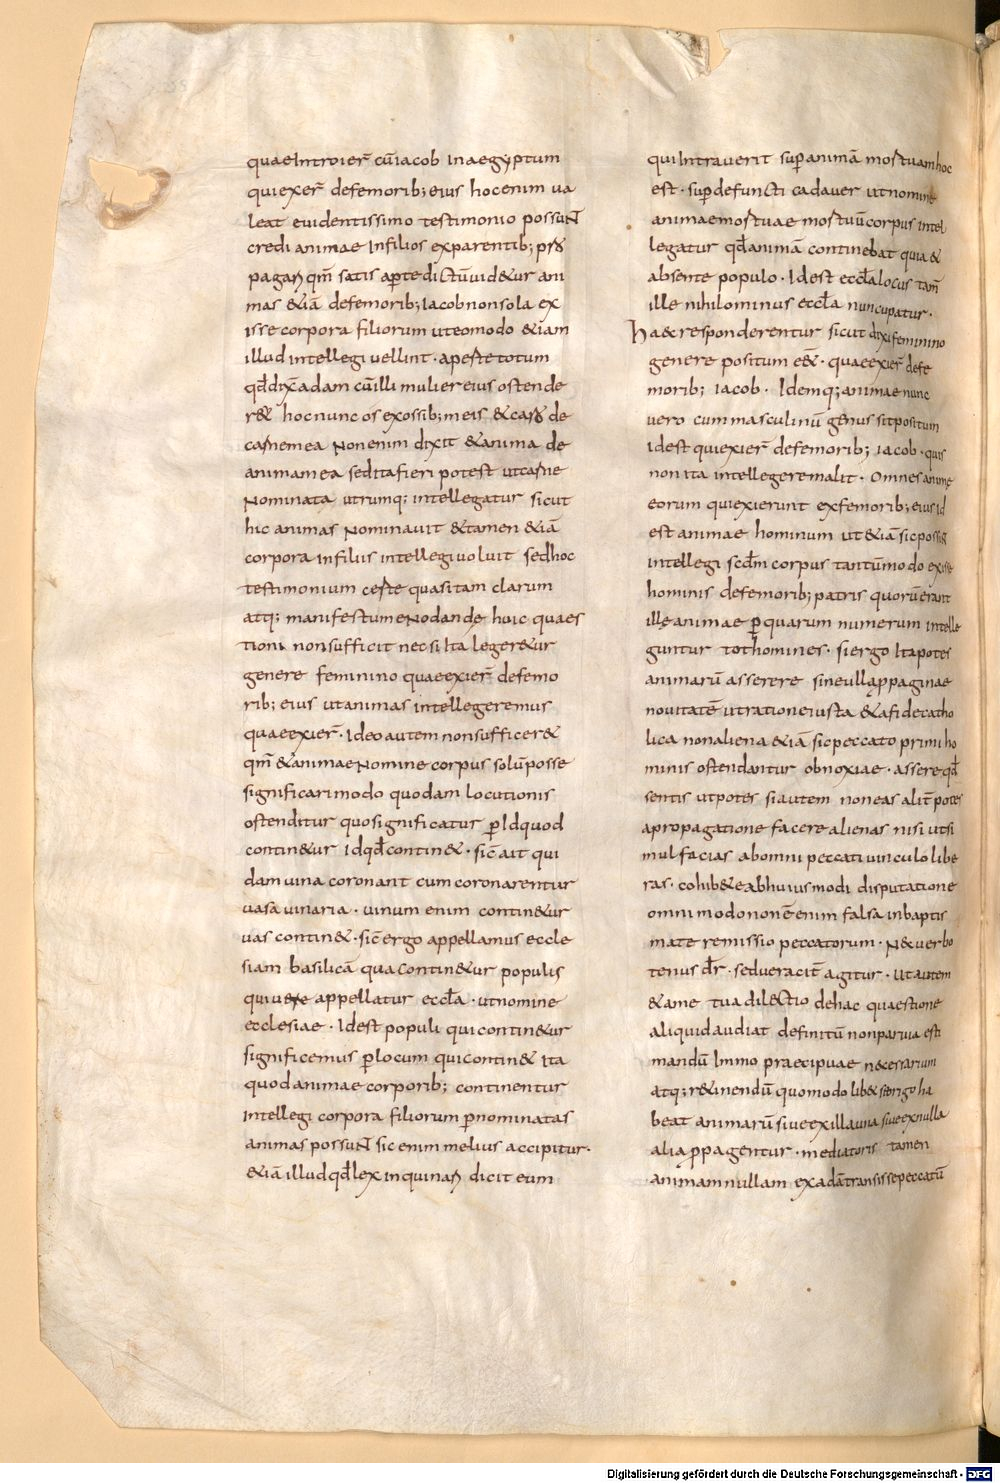 quae Introier̄ cū iacob in aegyptum
qui exier̄ de femorib; eius hoc enim ua
leat euidentissimo testimonio possuNt
credi animae In filios ex parentib; pro
pagari qm̄ satis aperte dictū uidetur ani
mas &iā de femorib; Iacob non sola ex
isse corpora filiorum ut eo modo &iam
illud intellegi uellint · aperte totum
qd̄ dix̄ adam cū illi mulier eius ostende
r& hoc nunc os ex ossib; meis & caro de
carne mea Non enim dixit & anima de
anima mea sed ita fieri potest ut carne
Nominata utrumq; intellegatur sicut
hic animas Nominauit & tamen &iā
corpora in filiis intellegi uoluit sed hoc
testimonium certe quasi tam clarum
atq; manifestum eNodandę huic quaes
tioni non sufficit nec si Ita leger&ur
genere feminino quae exier̄ de femo
rib; eius ut animas intellegeremus
quae exier̄ · Ideo autem non suffícer&
qm̄ & animae Nomine corpus solū posse
significari modo quodam locutionis
ostenditur quo significatur ꝑ Id quod
contin&ur Id qd̄ contin& · sic̄ ait qui
dam uina coronant cum coronarentur
uasa uinaria · uinum enim contin&ur
uas contin& · sic̄ ergo appellamus eccle
siam basilicā qua contin&ur populus
qui uere appellatur eccl̄a · ut nomine
ecclesiae · Id est populi qui contin&ur
significemus ꝑ locum qui contin& Ita
quod animae corporib; continentur
Intellegi corpora filiorum ꝑ nominatas
animas possuNt sic enim melius accipitur ·
&iā illud qd̄ lex inquinari dicit eum
qui Intrauerit suꝑ animā mortuam hoc
est · suꝑ defuncti cadauer ut nomine
animae mortuae mortuū corpus intel
legatur qd̄ animā continebat quia &
absente populo · Id est eccl̄a locus tam̄
ille nihilominus eccl̄a nuncupatur ·
Ha& responderentur sicut dixi feminino
genere positum ess& · quae exier̄ de fe
morib; iacob · Idemq; animae nunc
uero cum masculinū genus sit positum
Id est qui exier̄ de femorib; iacob · quis
non ita intellegere malit · Omnes animę
eorum qui exierunt ex femorib; eius id
est animae hominum ut &iā sic possit
intellegi scd̄m corpus tantūmodo exisse
hominis de femorib; patris quorū erant
illę animae ꝑ quarum numerum intelle
guntur tot homines · si ergo Ita potes
animarū asserere sine ulla ꝓpaginae
nouitatē ut ratione iusta & a fide catho
lica non aliena &iā sic peccato primi ho
minis ostendantur obnoxiae · assere qd̄
sentis ut potes si autem non eas alit̄ potes
a propagatione facere alienas nisi ut si
mul facias ab omni peccati uinculo libe
ras · cohib&e ab huius modi disputatione
omni modo non ē enim falsa in baptis
mate remissio peccatorum · Nec uerbo
tenus dr̄ · sed ueracit̄ agitur · Ut autem
& a me tua dilectio de hac quaestione
aliquid audiat definitū non parua esti
mandū Immo praecipuae necessarium
atq; r&inendū quomodo lib& se origo ha
beat animarū siue ex illa una siue ex nulla
alia ꝓpagentur · mediatoris tamen
animam nullam ex adā transisse peccatū
Digitalisierung gefördert durch die Deutsche Forschungsgemeinschaft - DFG